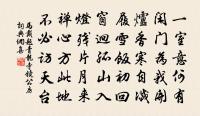 一室意何有
閑門為我開
爐香寒自滅
履雪飯初回
窗迴孤山入
燈殘片月來
禪心方此地
不必訪天台
馬戴題青龍寺鏡公房
詞典網